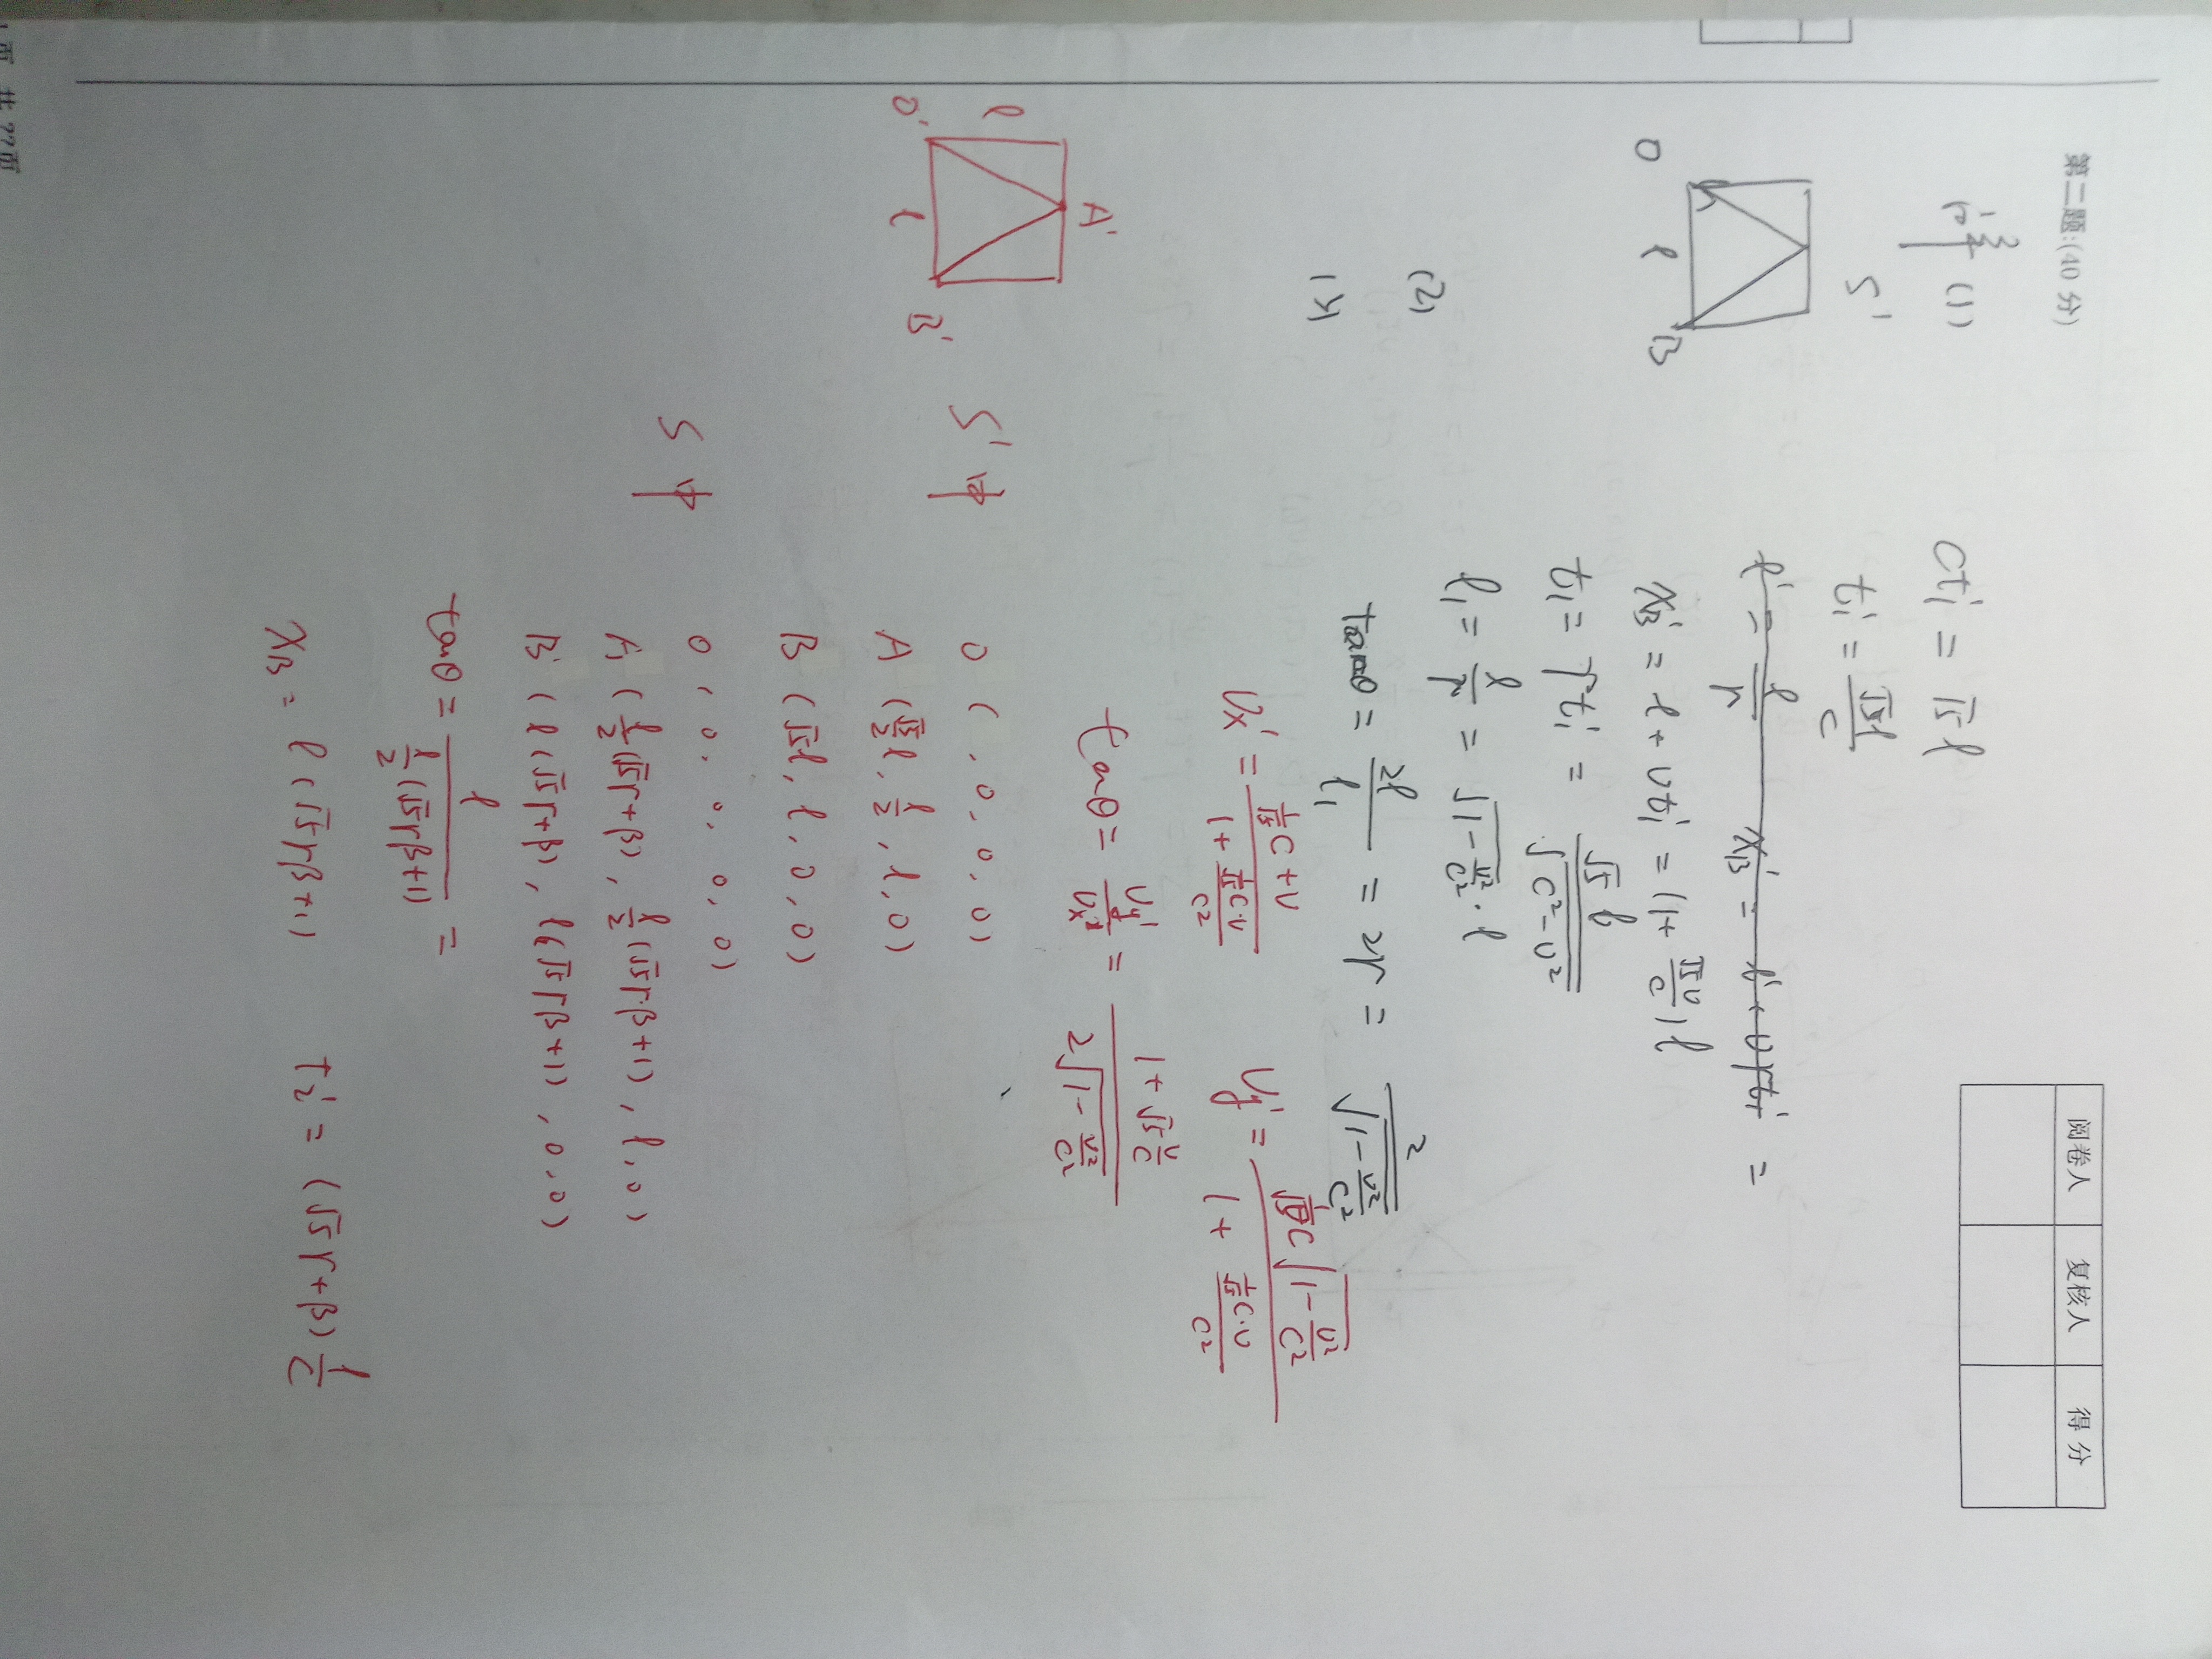 第二题:(40 分)
阅卷人 复核人 得分
(1)
S'
O l B
ct₁' = √5 l
t₁' = √5l/c
l' = l/γ x_B' = l' + vγt₁' =
x_B' = l + vt₁' = (1 + √5v/c) l
t₁ = γt₁' = √5 l/√(c²-v²)
(2)
l₁ = l/γ = √(1-v²/c²) · l
tanθ = 2l/l₁ = 2γ = 2/√(1-v²/c²)
vx' = (1/√5 c + v)/(1 + (1/√5 c·v)/c²) vy' = c√(1-v²/c²)/(1 + (1/√5 c·v)/c²)
tanθ = vy'/vx' = (1 + √5 v/c)/(2√(1-v²/c²))
A'
l
O' l B'
S' 中
O ( , 0, 0, 0)
A (√5/2 l, l/2, l, 0)
B (√5l, l, 0, 0)
S 中
O ( 0, 0, 0, 0)
A' (l/2(√5γ+β), l/2(√5γβ+1), l, 0)
B' (l(√5γ+β), l(√5γβ+1), 0, 0)
tanθ = l/(l/2(√5γβ+1)) =
x_B = l(√5γβ+1) t₂' = (√5γ+β) l/c
共??页